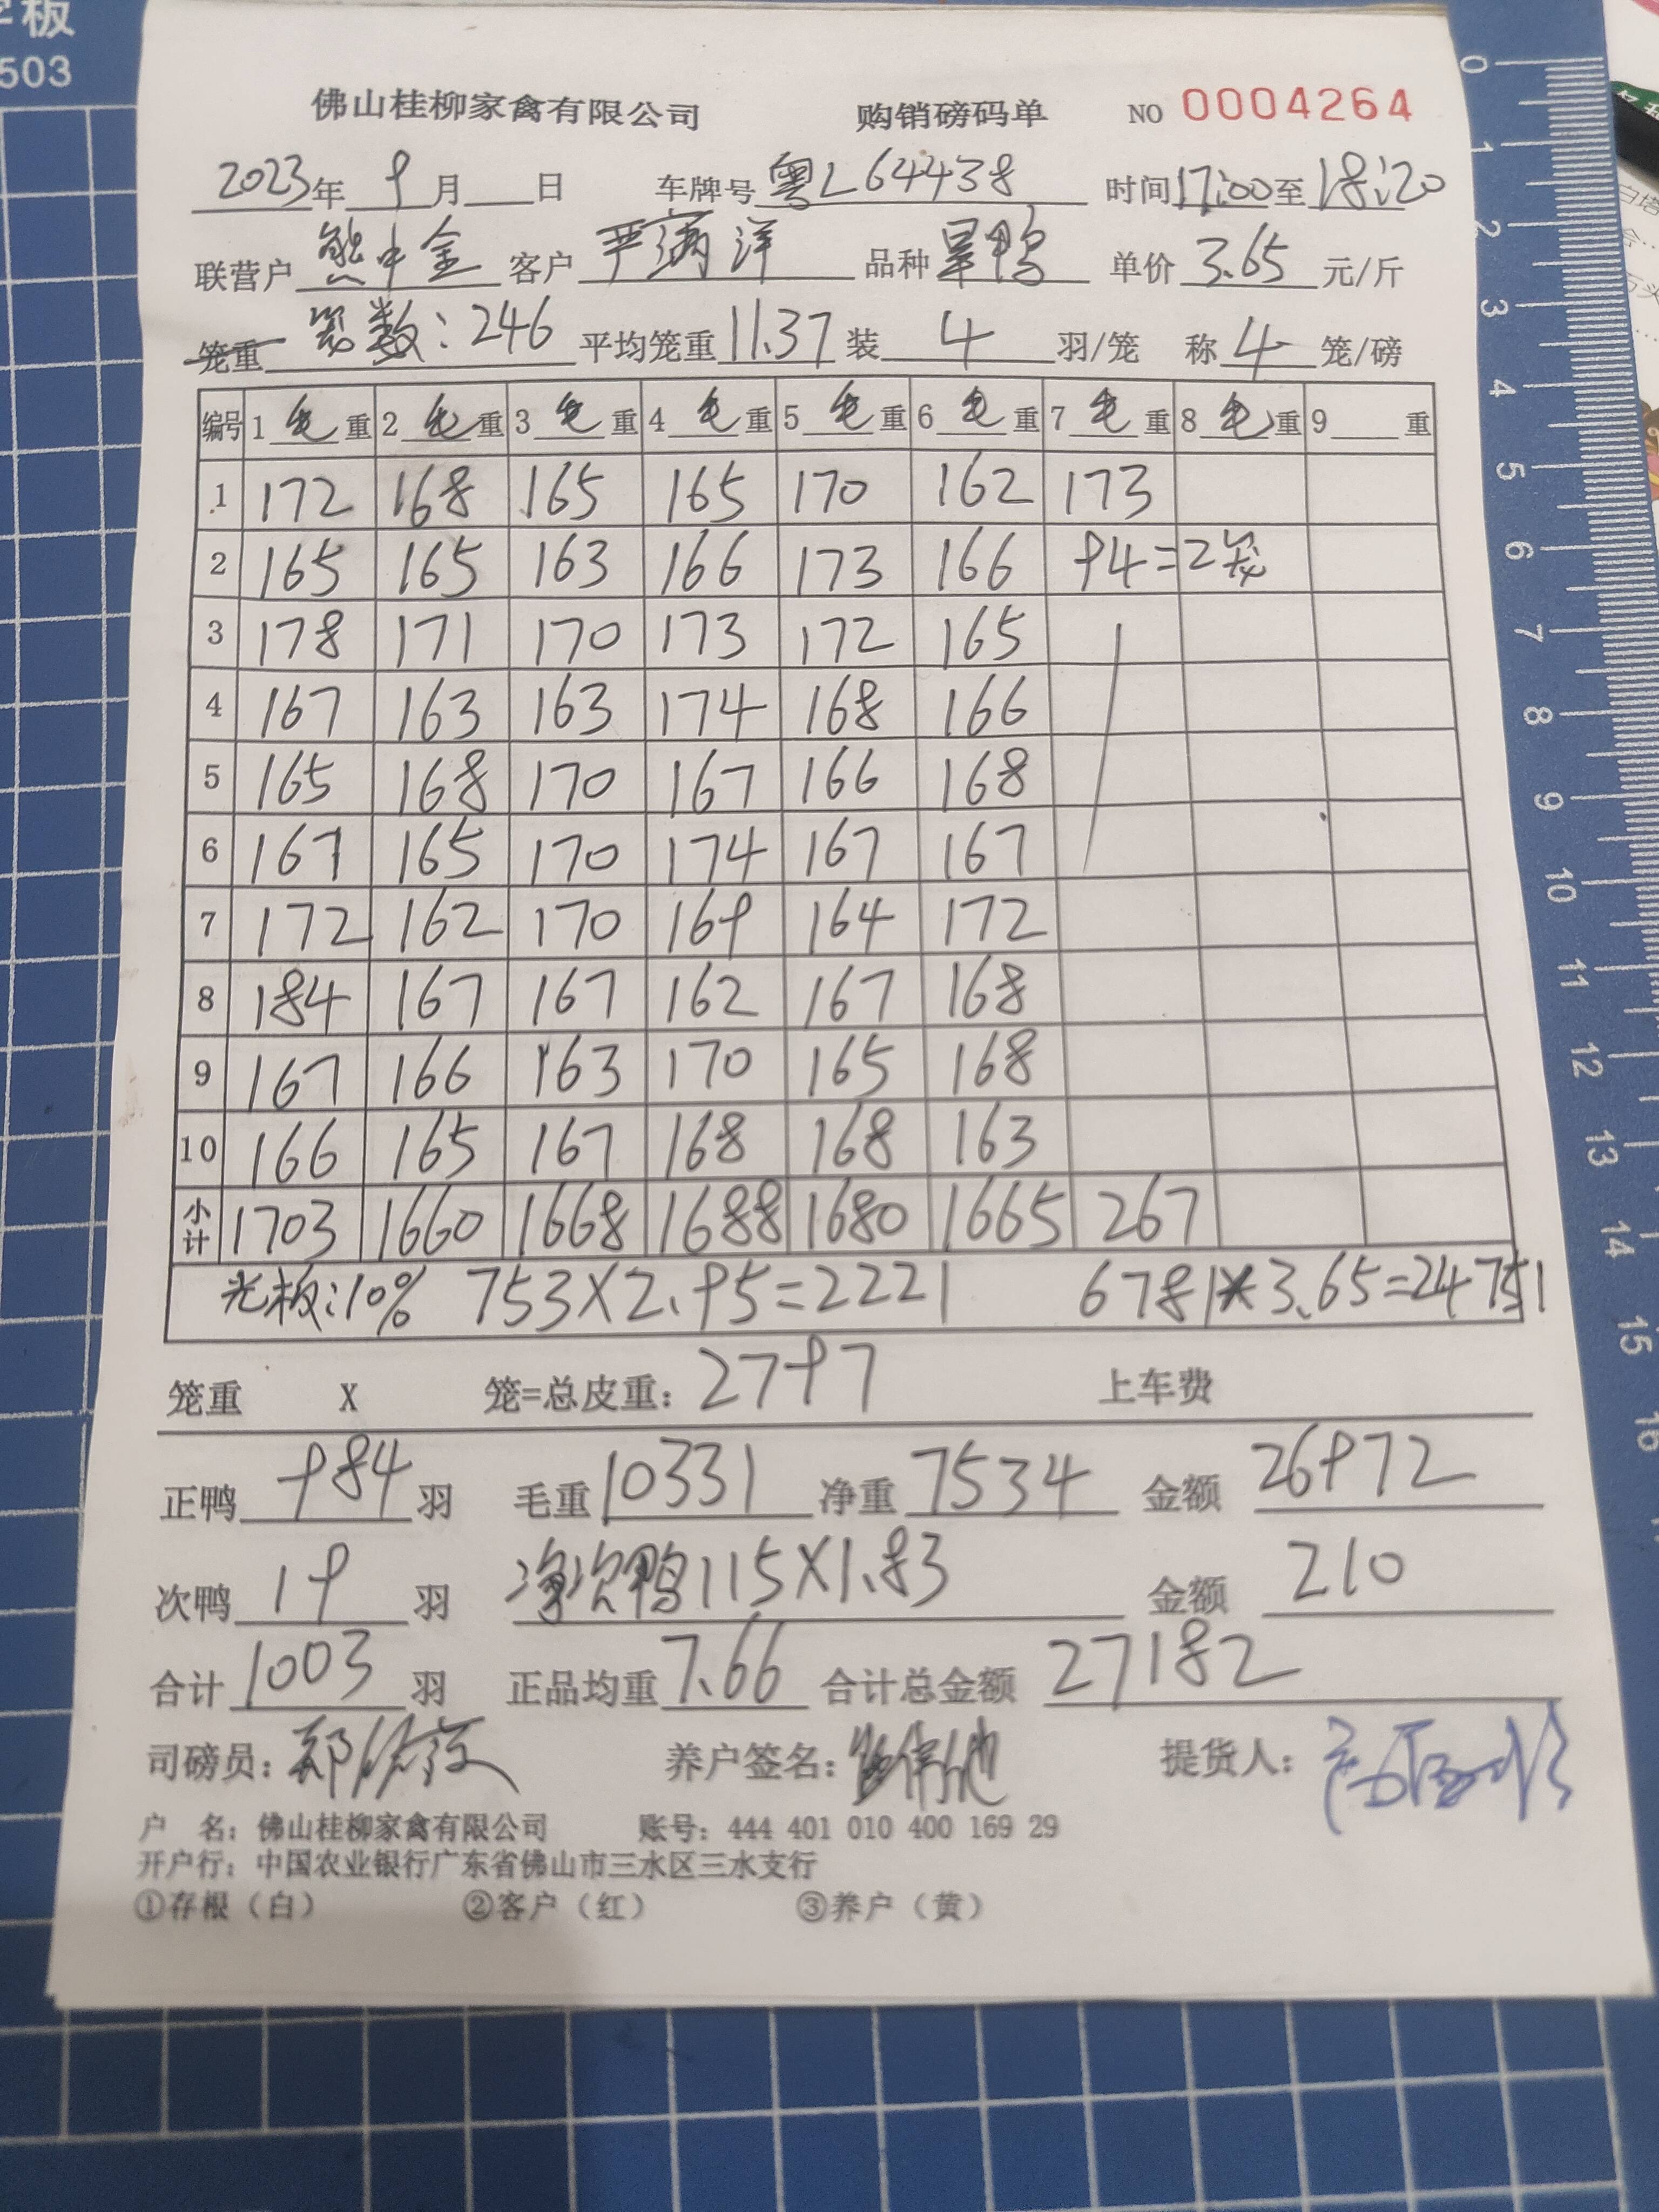 字板
503
佛山桂柳家禽有限公司 购销磅码单 NO 0004264
2023年 9月 日 车牌号 粤L64438 时间17:00至18:20
联营户 熊中金 客户 严满洋 品种 旱鸭 单价 3.65 元/斤
笼重 笼数:246 平均笼重 11.37 装 4 羽/笼 称 4 笼/磅
编号 1 毛 重 2 毛 重 3 毛 重 4 毛 重 5 毛 重 6 毛 重 7 毛 重 8 毛 重 9 重
1 172 168 165 165 170 162 173
2 165 165 163 166 173 166 94=2笼
3 178 171 170 173 172 165
4 167 163 163 174 168 166
5 165 168 170 167 166 168
6 167 165 170 174 167 167
7 172 162 170 169 164 172
8 184 167 167 162 167 168
9 167 166 163 170 165 168
10 166 165 167 168 168 163
小计 1703 1660 1668 1688 1680 1665 267
光板:10% 753X2.95=2221 6781*3.65=24751
笼重 X 笼=总皮重: 2797 上车费
正鸭 984 羽 毛重 10331 净重 7534 金额 26972
次鸭 19 羽 净次鸭115X1.83 金额 210
合计 1003 羽 正品均重 7.66 合计总金额 27182
司磅员: 养户签名: 提货人:
户 名: 佛山桂柳家禽有限公司 账号: 444 401 010 400 169 29
开户行: 中国农业银行广东省佛山市三水区三水支行
①存根（白） ②客户（红） ③养户（黄）
0
1
2
3
4
5
6
7
8
9
10
11
12
13
14
15
16